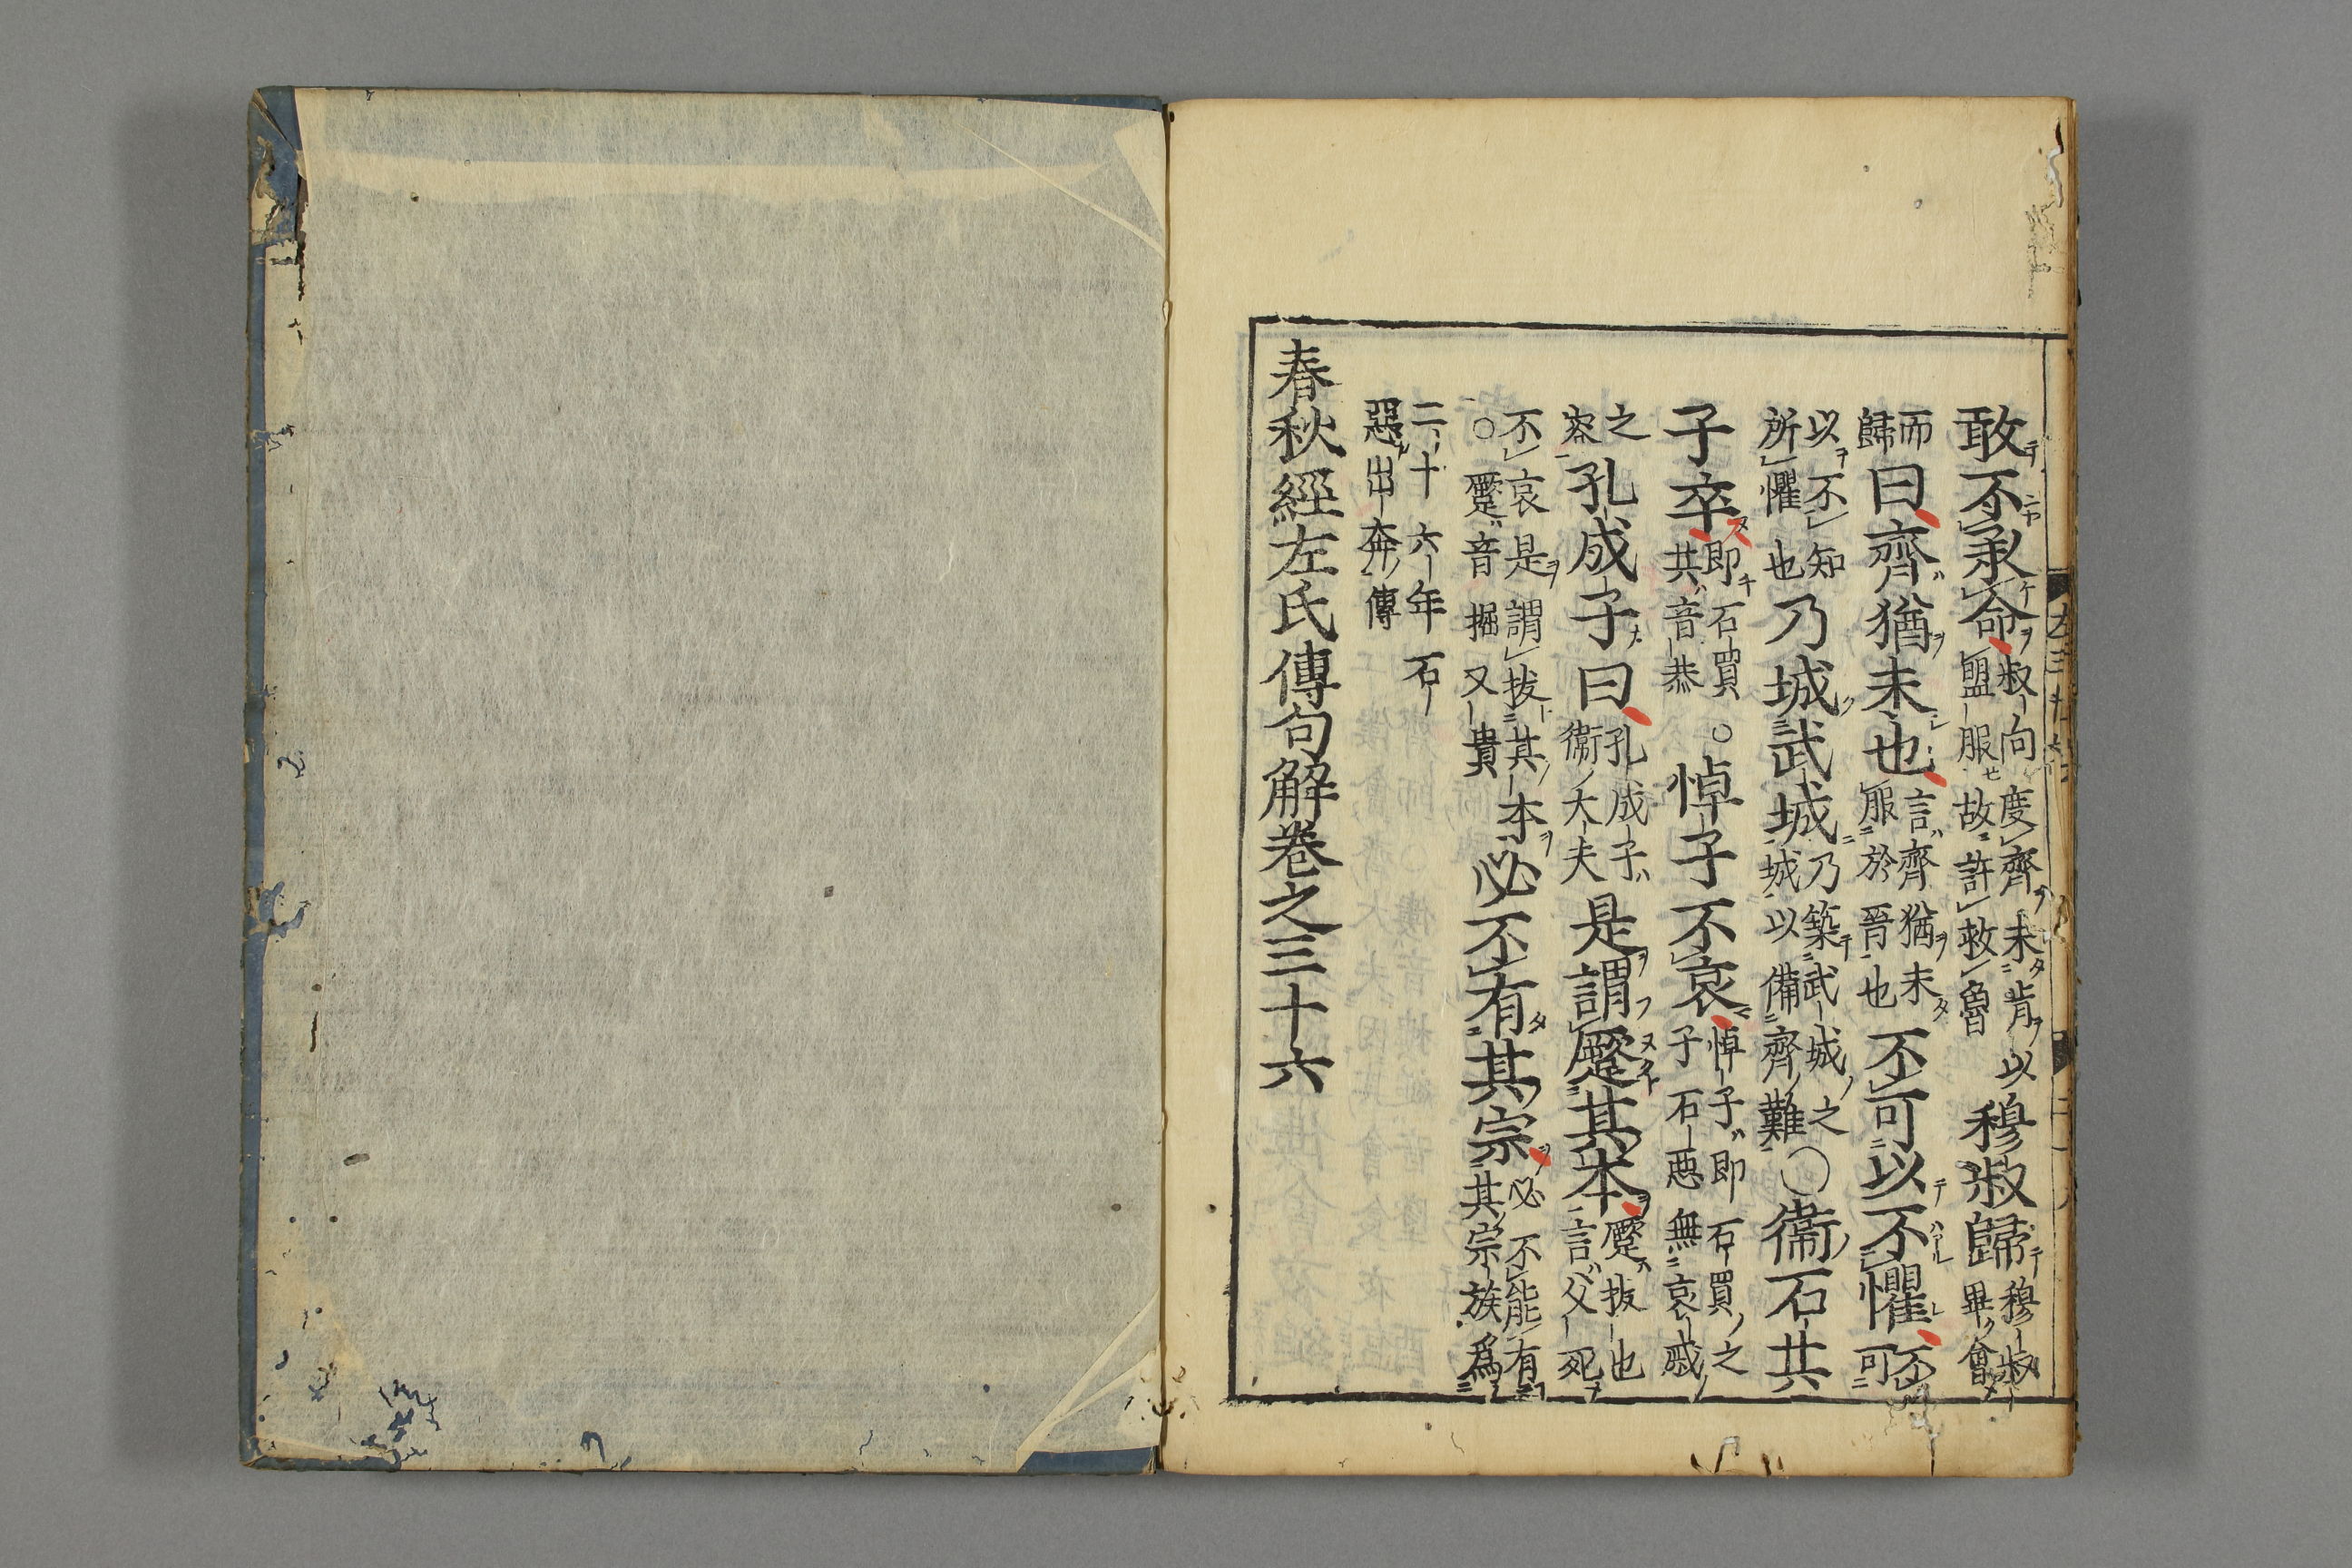 敢不承命叔向度齊未肯以盟服故許救魯穆叔歸穆叔畢會
而歸曰齊猶未也言齊猶未服於晉也不可以不懼不可
以不知所懼也乃城武城乃築武城之城以備齊難○衞石共
子卒即石買○共音恭悼子不哀悼子即石買之子石惡無哀戚
之容孔成子曰孔成子衞大夫是謂蹷其本蹷拔也言父死
不哀是謂拔其本○蹷音掘又貴必不有其宗必不能有其宗族爲
二十六年石惡出奔傳
春秋經左氏傳句解卷之三十六